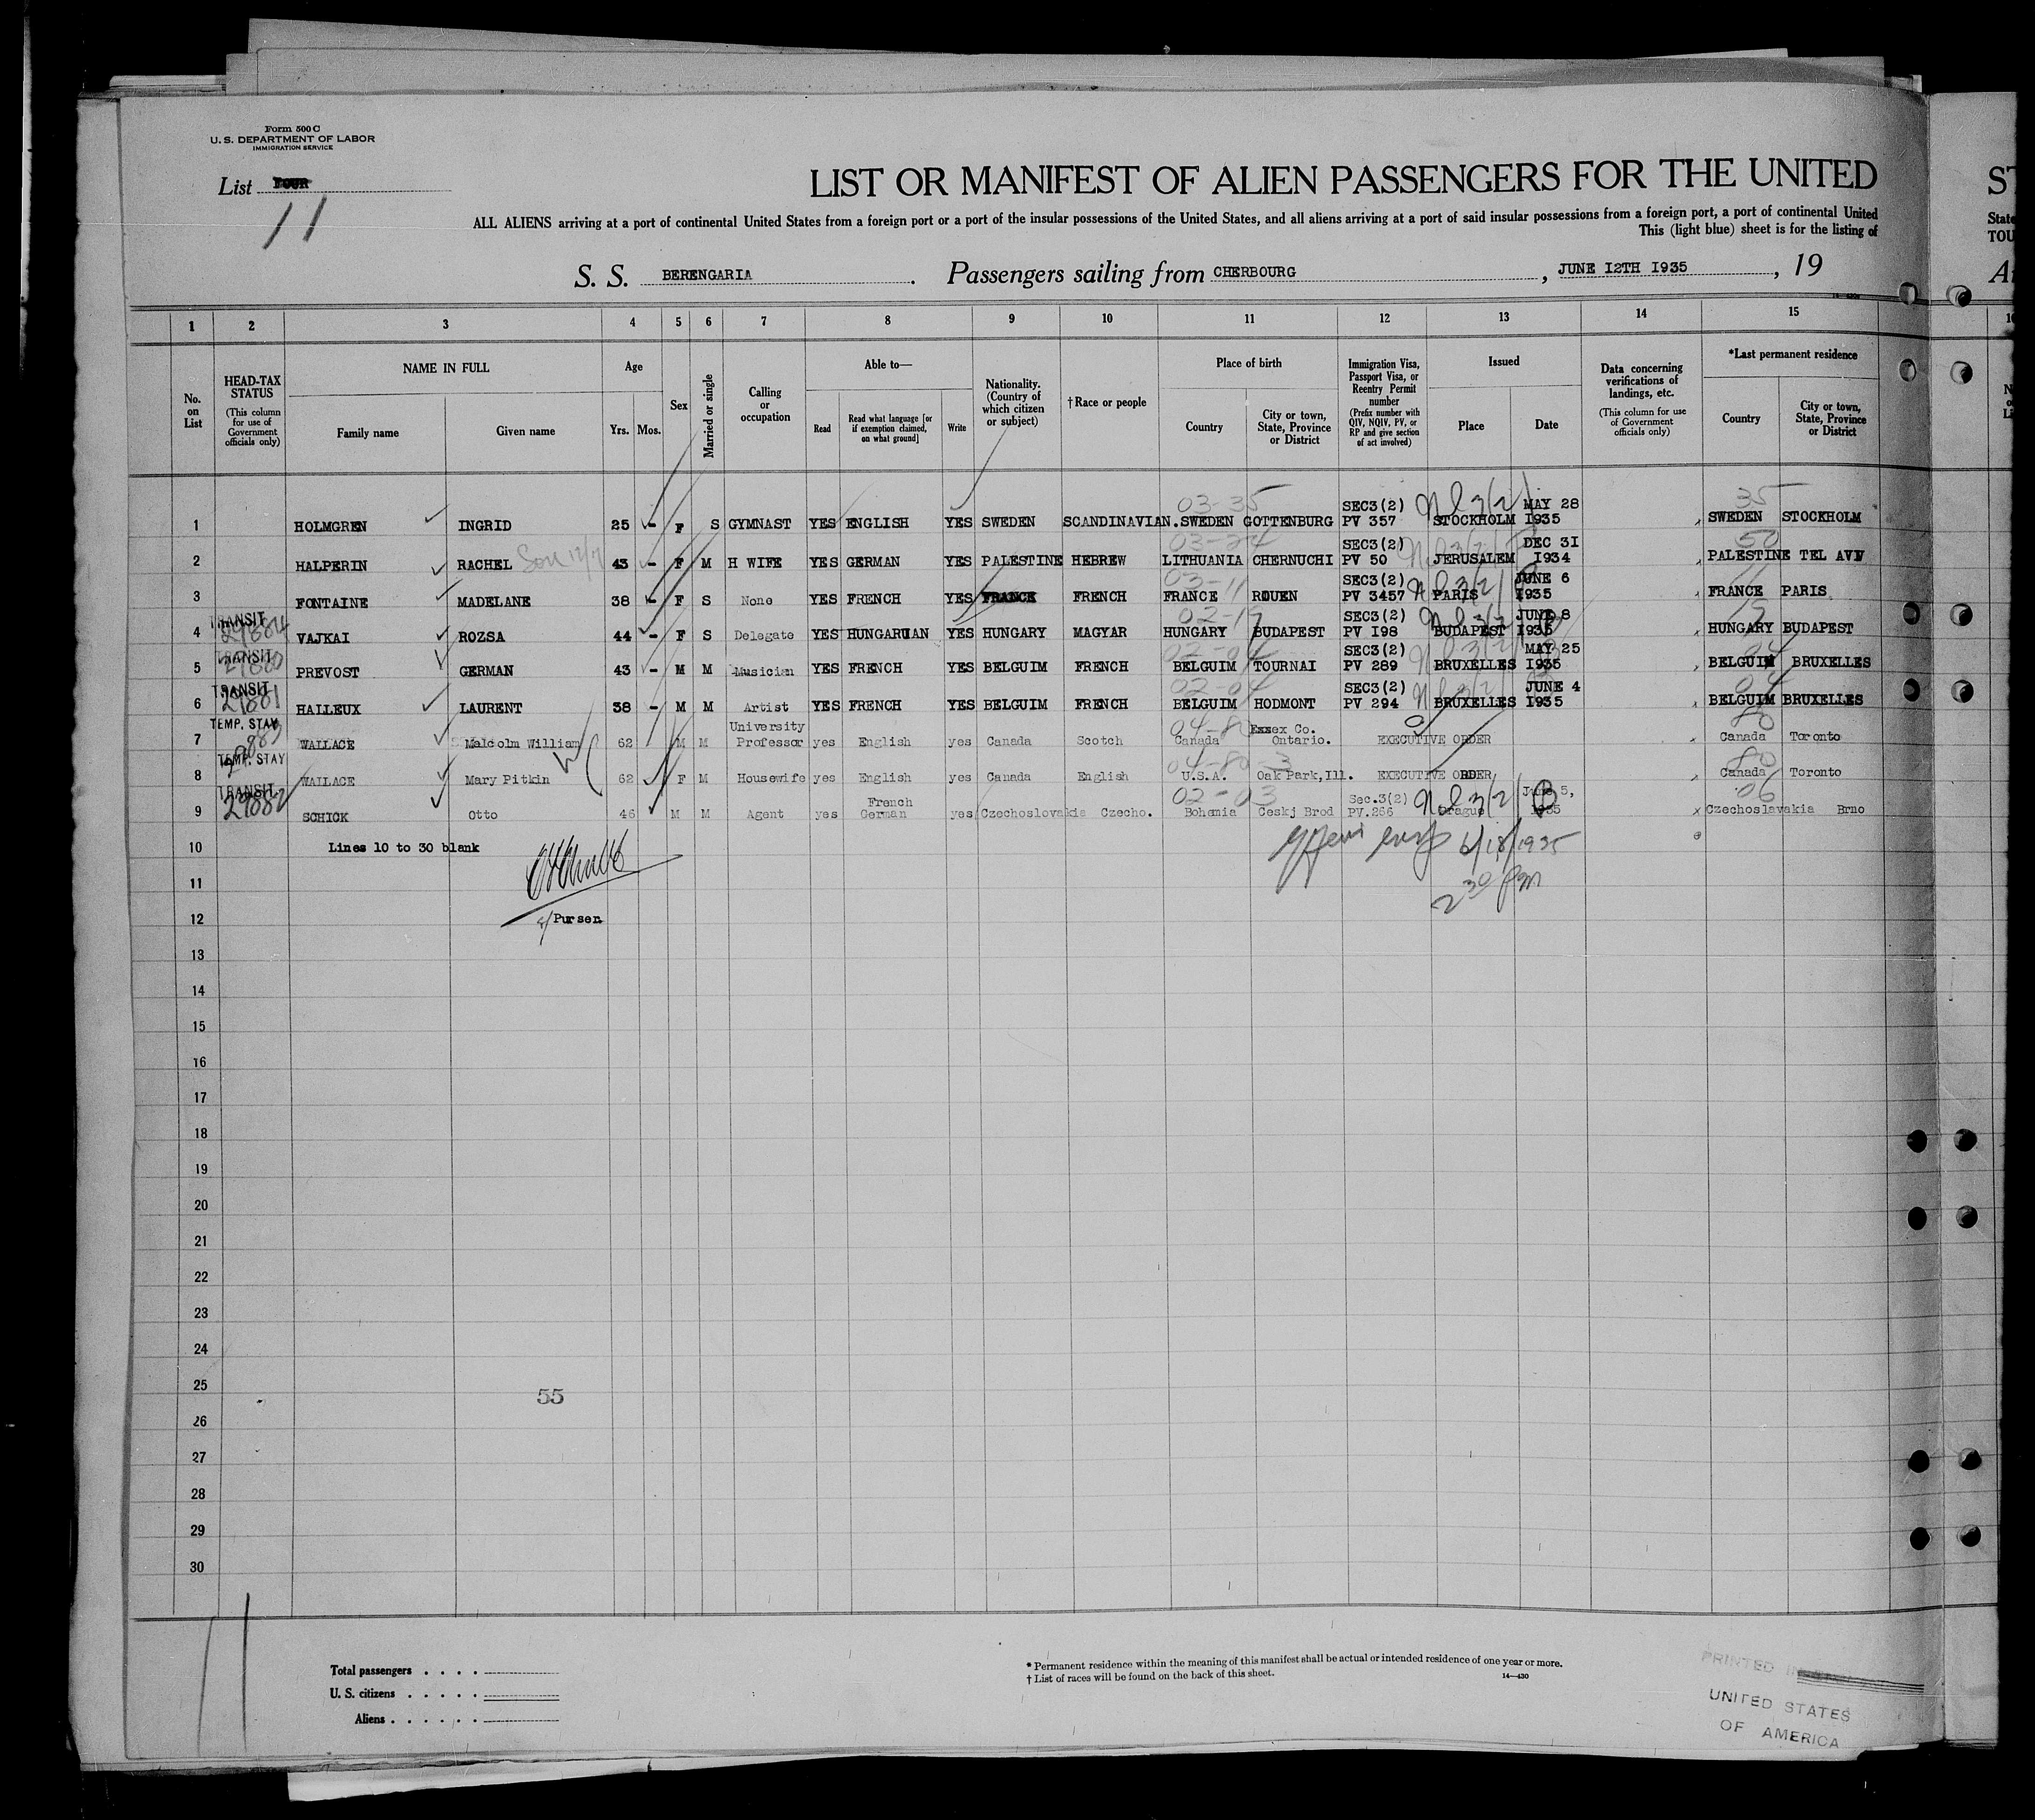 Form 500 C
U. S. DEPARTMENT OF LABOR
IMMIGRATION SERVICE
List FOUR
11
LIST OR MANIFEST OF ALIEN PASSENGERS FOR THE UNITED
ALL ALIENS arriving at a port of continental United States from a foreign port or a port of the insular possessions of the United States, and all aliens arriving at a port of said insular possessions from a foreign port, a port of continental United
This (light blue) sheet is for the listing of
S. S. BERENGARIA. Passengers sailing from CHERBOURG, JUNE I2TH I935, 19
ST
State
TOU
1 2 3 4 5 6 7 8 9 10 11 12 13 14 15
No. on List
HEAD-TAX STATUS (This column for use of Government officials only)
NAME IN FULL
Family name Given name
Age
Yrs. Mos.
Sex
Married or single
Calling or occupation
Able to—
Read Read what language [or if exemption claimed, on what ground] Write
Nationality. (Country of which citizen or subject)
† Race or people
Place of birth
Country City or town, State, Province or District
Immigration Visa, Passport Visa, or Reentry Permit number (Prefix number with QIV, NQIV, PV, or RP and give section of act involved)
Issued
Place Date
Data concerning verifications of landings, etc. (This column for use of Government officials only)
*Last permanent residence
Country City or town, State, Province or District
03-35 35
1 HOLMGREN INGRID 25 - F S GYMNAST YES ENGLISH YES SWEDEN SCANDINAVIAN. SWEDEN GOTTENBURG SEC3(2) PV 357 STOCKHOLM MAY 28 I935 SWEDEN STOCKHOLM
2 HALPERIN RACHEL 43 - F M H WIFE YES GERMAN YES PALESTINE HEBREW LITHUANIA CHERNUCHI SEC3(2) PV 50 JERUSALEM DEC 3I I934 PALESTINE TEL AVIV
03-11
3 FONTAINE MADELANE 38 - F S None YES FRENCH YES FRANCE FRENCH FRANCE ROUEN SEC3(2) PV 3457 PARIS JUNE 6 I935 FRANCE PARIS
TRANSIT 29884 02-19 19
4 VAJKAI ROZSA 44 - F S Delegate YES HUNGARUIAN YES HUNGARY MAGYAR HUNGARY BUDAPEST SEC3(2) PV I98 BUDAPEST JUNE 8 I935 HUNGARY BUDAPEST
TRANSIT 29880 02-04 04
5 PREVOST GERMAN 43 - M M Musician YES FRENCH YES BELGUIM FRENCH BELGUIM TOURNAI SEC3(2) PV 289 BRUXELLES MAY 25 I935 BELGUIM BRUXELLES
TRANSIT 29881 02-04 04
6 HALLEUX LAURENT 38 - M M Artist YES FRENCH YES BELGUIM FRENCH BELGUIM HODMONT SEC3(2) PV 294 BRUXELLES JUNE 4 I935 BELGUIM BRUXELLES
TEMP. STAY 29883 04-80 80
7 WALLACE Malcolm William 62 M M University Professor yes English yes Canada Scotch Canada Essex Co. Ontario. EXECUTIVE ORDER Canada Toronto
TEMP. STAY 04-80 80
8 WALLACE Mary Pitkin 62 F M Housewife yes English yes Canada English U.S.A. Oak Park, Ill. EXECUTIVE ORDER Canada Toronto
TRANSIT 29882 02-03 06
9 SCHICK Otto 46 M M Agent yes French German yes Czechoslovakia Czecho. Bohemia Ceskj Brod Sec.3(2) PV.266 Prague June 5, 1935 Czechoslavakia Brno
10 Lines 10 to 30 blank
6/18/1935
2 30 pm
11
12 Purser
13
14
15
16
17
18
19
20
21
22
23
24
25
55
26
27
28
29
30
Total passengers
U. S. citizens
Aliens
* Permanent residence within the meaning of this manifest shall be actual or intended residence of one year or more.
† List of races will be found on the back of this sheet.
14—430
PRINTED IN
UNITED STATES
OF AMERICA